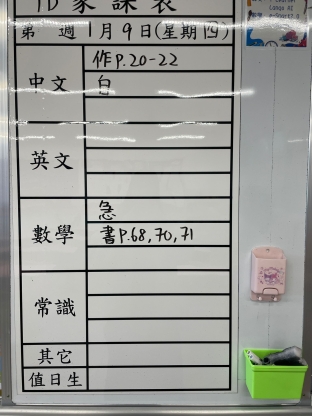 家課表
第 週 1月9日(星期四)
中文 作P.20-22
白
英文
數學 急
書P.68,70,71
常識
其它
值日生